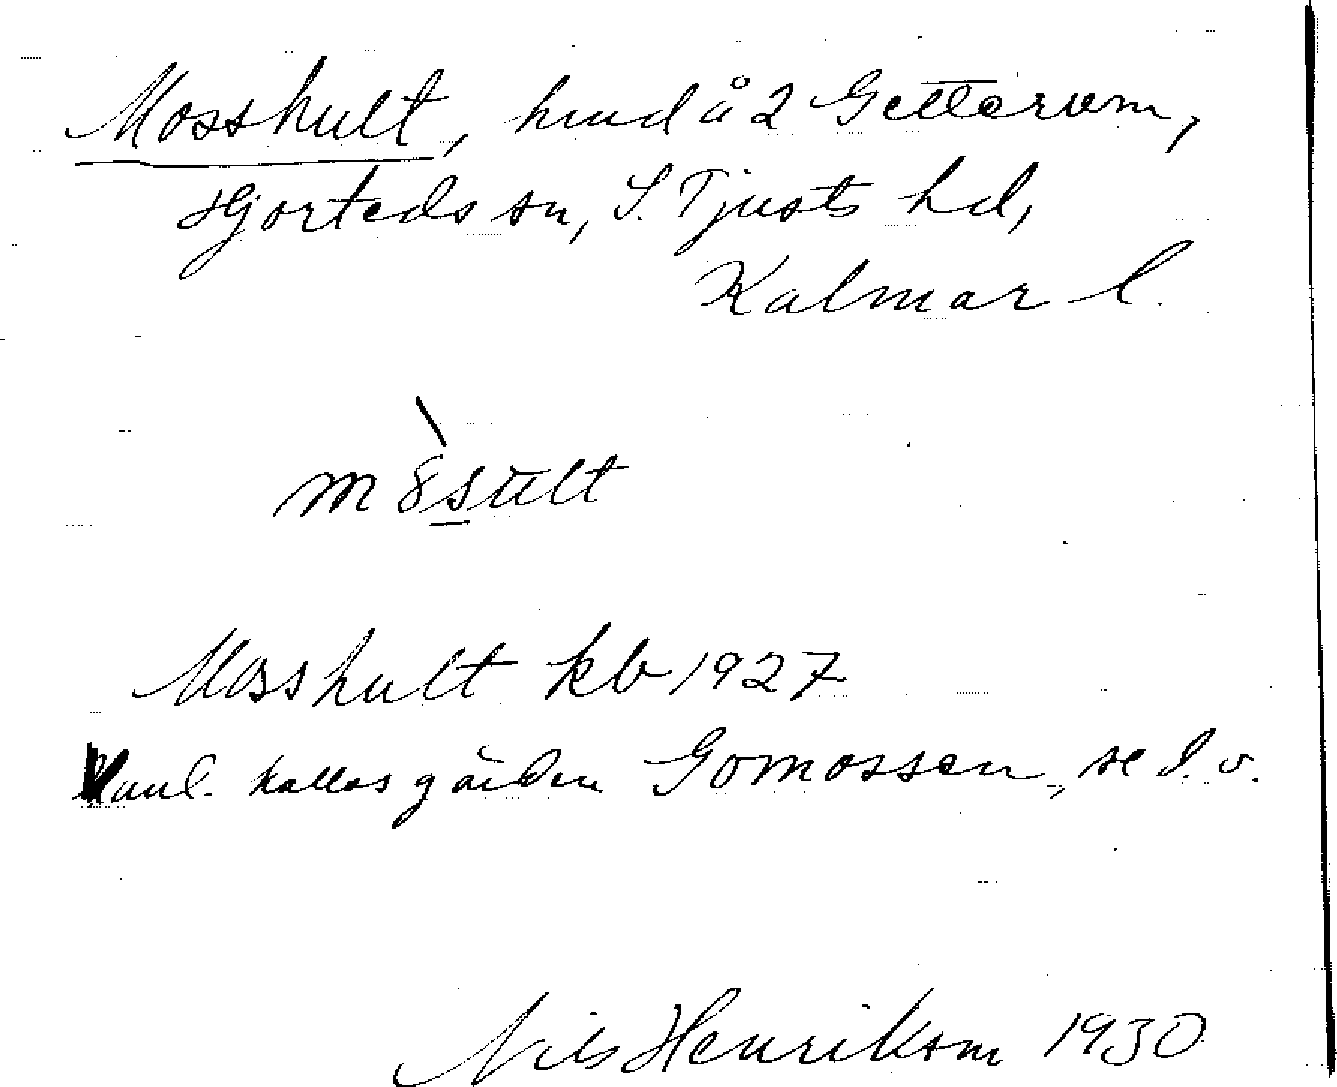 Mosshult, hmd å 2 Getterum,
Hjorteds sn, S. Tjusts hd,
Kalmar l.
Mosshult kb 1927
Vanl. kallas gården Gomossen, se d. o.
Nils Henrikson 1930